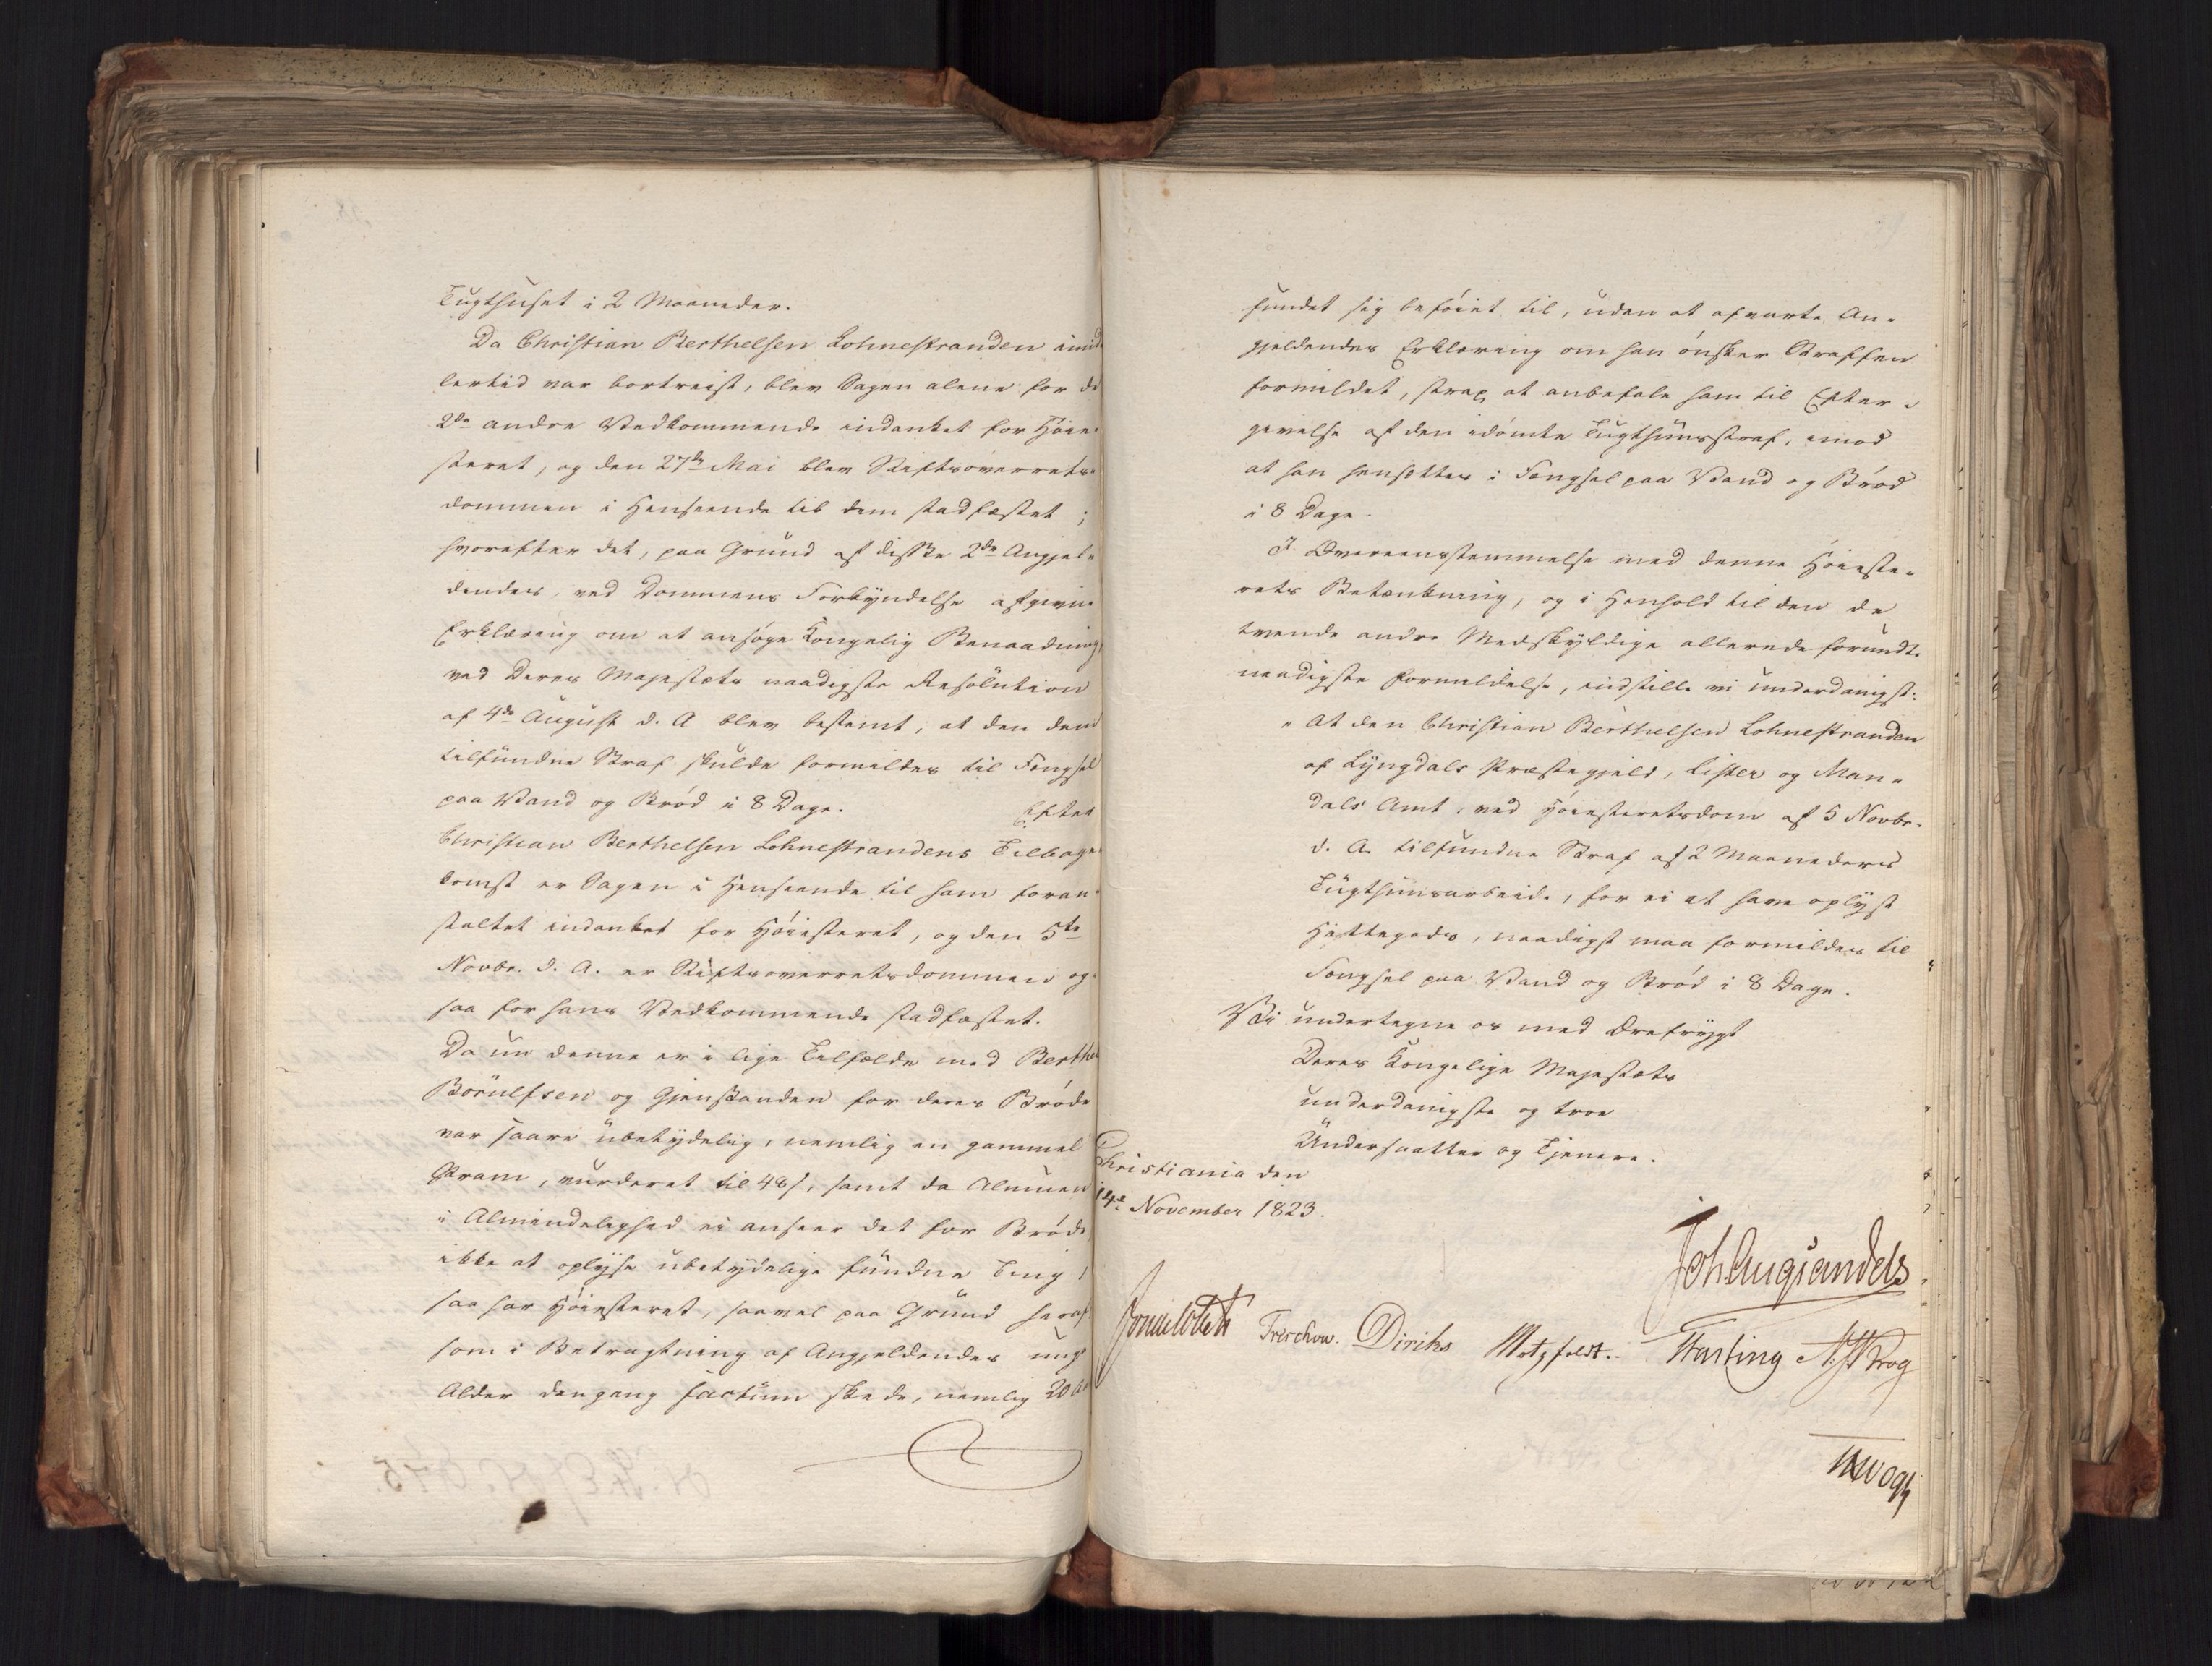 Tugthuset i 2 Maaneder.
Da Christian Berthelsen Lohnestranden imid
lertid var bortreist, blev Sagen alene for de
2de andre Vedkommende indanket for Høie-
steret, og den 27de Mai blev Stiftsoverrets-
dommen i Henseende til dem stadfæstet;
hvorefter det, paa Grund af disse 2de Angjel-
dendes, ved Dommens Forkyndelse afgivne
Erklæring om at ansøge Kongelig Benaadning,
ved Deres Majestæts naadigste Resolution
af 4de August d. A blev bestemt, at den dem
tilfundne Straf skulde formildes til Fængsel
paa Vand og Brød i 8 Dage. Efter
Christian Berthelsen Lohnestrandens Tilbage-
komst er Sagen i Henseende til ham foran-
staltet indanket for Høiesteret, og den 5te
Novbr. d. A. er Stiftsoverretsdommen og-
saa for hans Vedkommende stadfæstet.
Da nu denne er i lige Tilfælde med Berthel
Børulfsen og Gjenstanden for deres Brøde
var saare ubetydelig, nemlig en gammel
Pram, vurderet til 48 s, samt da Almuen
i Almindelighed ei anseer det for Brøde,
ikke at oplyse ubetydelige fundne Ting,
saa har Høiesteret, saavel paa Grund heraf
som i Betragtning af Angjeldendes unge
Alder dengang factum skede, nemlig 20 Aar
fundet sig beføiet til, uden at afvarte An-
gjeldendes Erklæring om han ønsker Straffen
formildet, strax at anbefale ham til Efter-
givelse af den idømte Tugthuusstraf, imod
at han hensættes i Fængsel paa Vand og Brød
i 8 Dage.
I Overeensstemmelse med denne Høieste-
rets Betænkning, og i Henhold til den de
tvende andre Medskyldige allerede forundte
naadigste Formildelse, indstille vi underdanigst:
" At den Christian Berthelsen Lohnestranden
af Lyngdals Præstegjeld, Lister og Man-
dals Amt, ved Høiesteretsdom af 5 Novbr.
d. A. tilfundne Straf af 2 Maaneders
Tugthuusarbeide, for ei at have oplyst
Hittegods, naadigst maa formildes til
Fængsel paa Vand og Brød i 8 Dage.
Vi undertegne os med Ærefrygt
Deres Kongelige Majestæts
underdanigste og troe
Undersaatter og Tjenere.
Christiania den
14de November 1823.
Joh. Aug. Sandels
Sommerhielm Treschow. Diriks Motzfeldt. Fasting N. J. Krog
Vogt